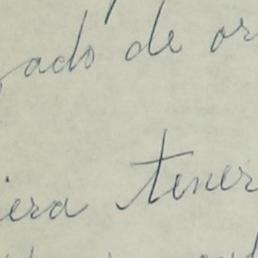 ado de or
iera tener